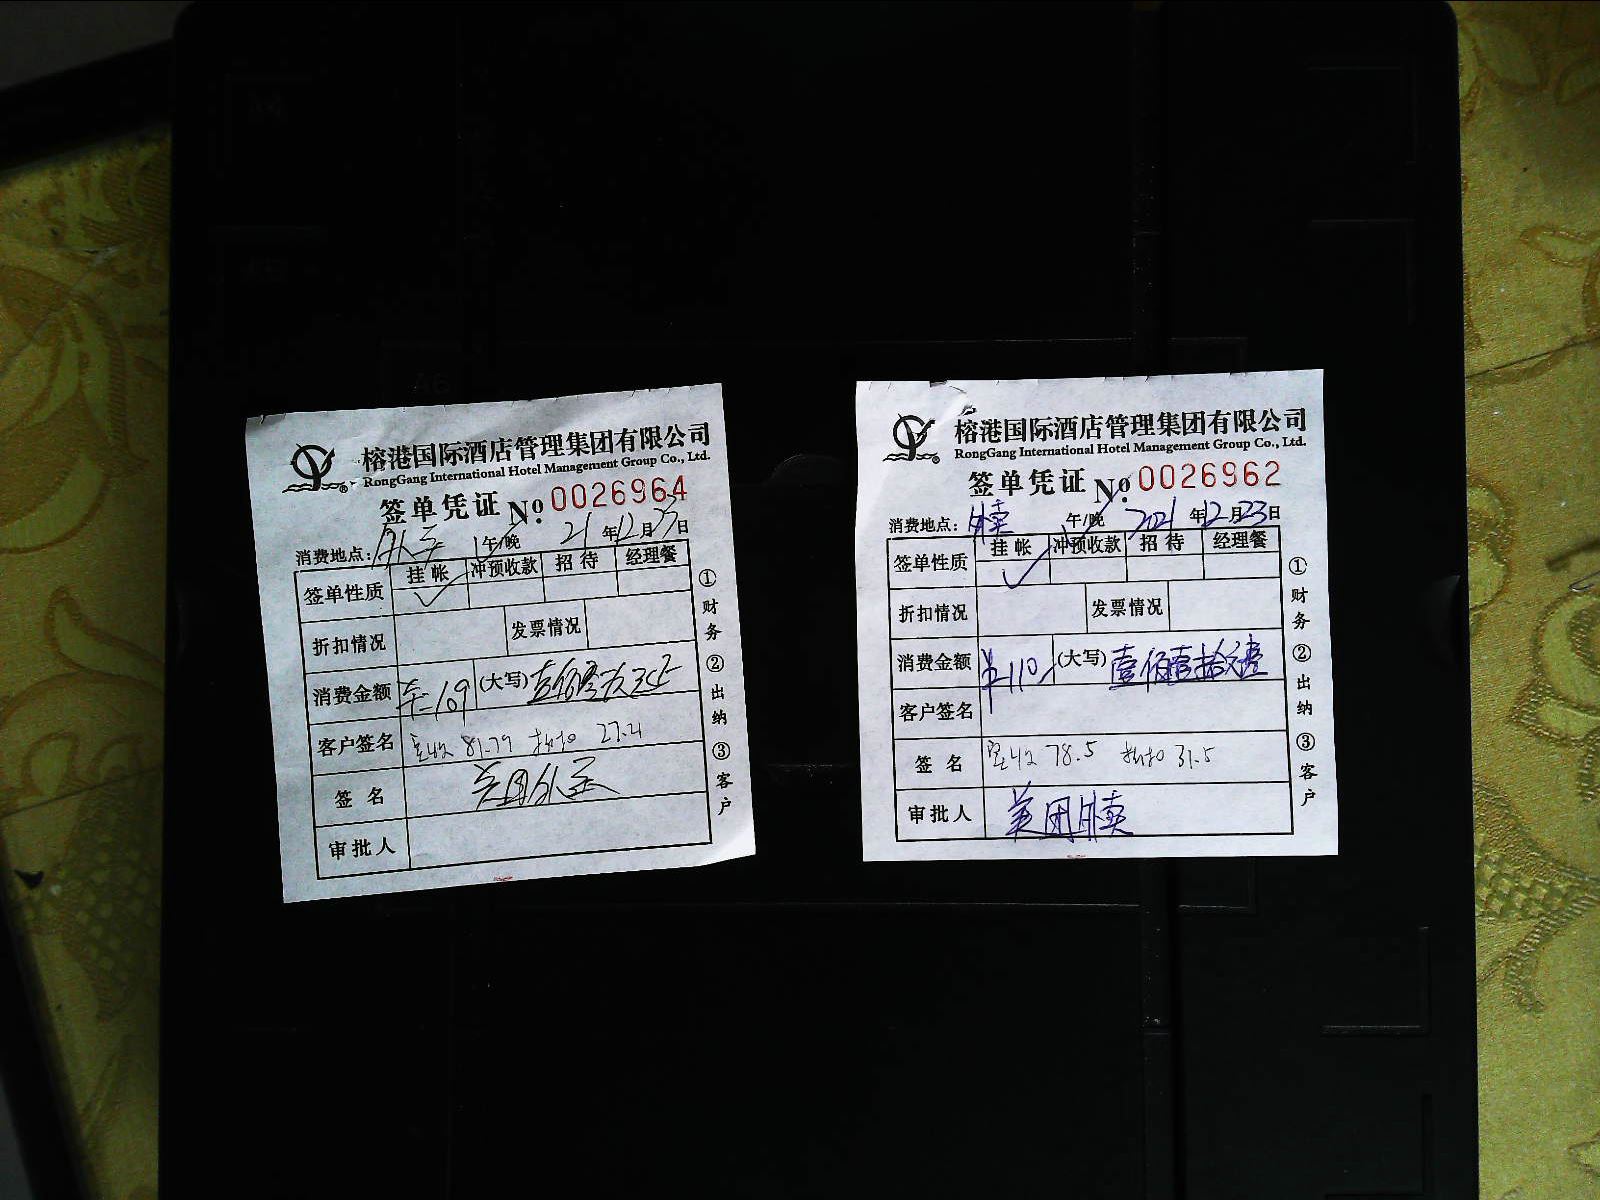 榕港国际酒店管理集团有限公司
RongGang International Hotel Management Group Co., Ltd.
签单凭证 No. 0026964
消费地点: 外卖 午/晚 21年12月23日
签单性质 挂帐 冲预收款 招待 经理餐
✓
折扣情况 发票情况
消费金额 109 (大写) 壹佰零玖元正
客户签名 实收 81.79 折扣 27.21
签名 美团外卖
审批人
①财务 ②出纳 ③客户
榕港国际酒店管理集团有限公司
RongGang International Hotel Management Group Co., Ltd.
签单凭证 No. 0026962
消费地点: 外卖 午/晚 2021年12月23日
签单性质 挂帐 冲预收款 招待 经理餐
✓
折扣情况 发票情况
消费金额 ¥110 (大写) 壹佰壹拾元整
客户签名
签名 实收 78.5 折扣 31.5
审批人 美团外卖
①财务 ②出纳 ③客户